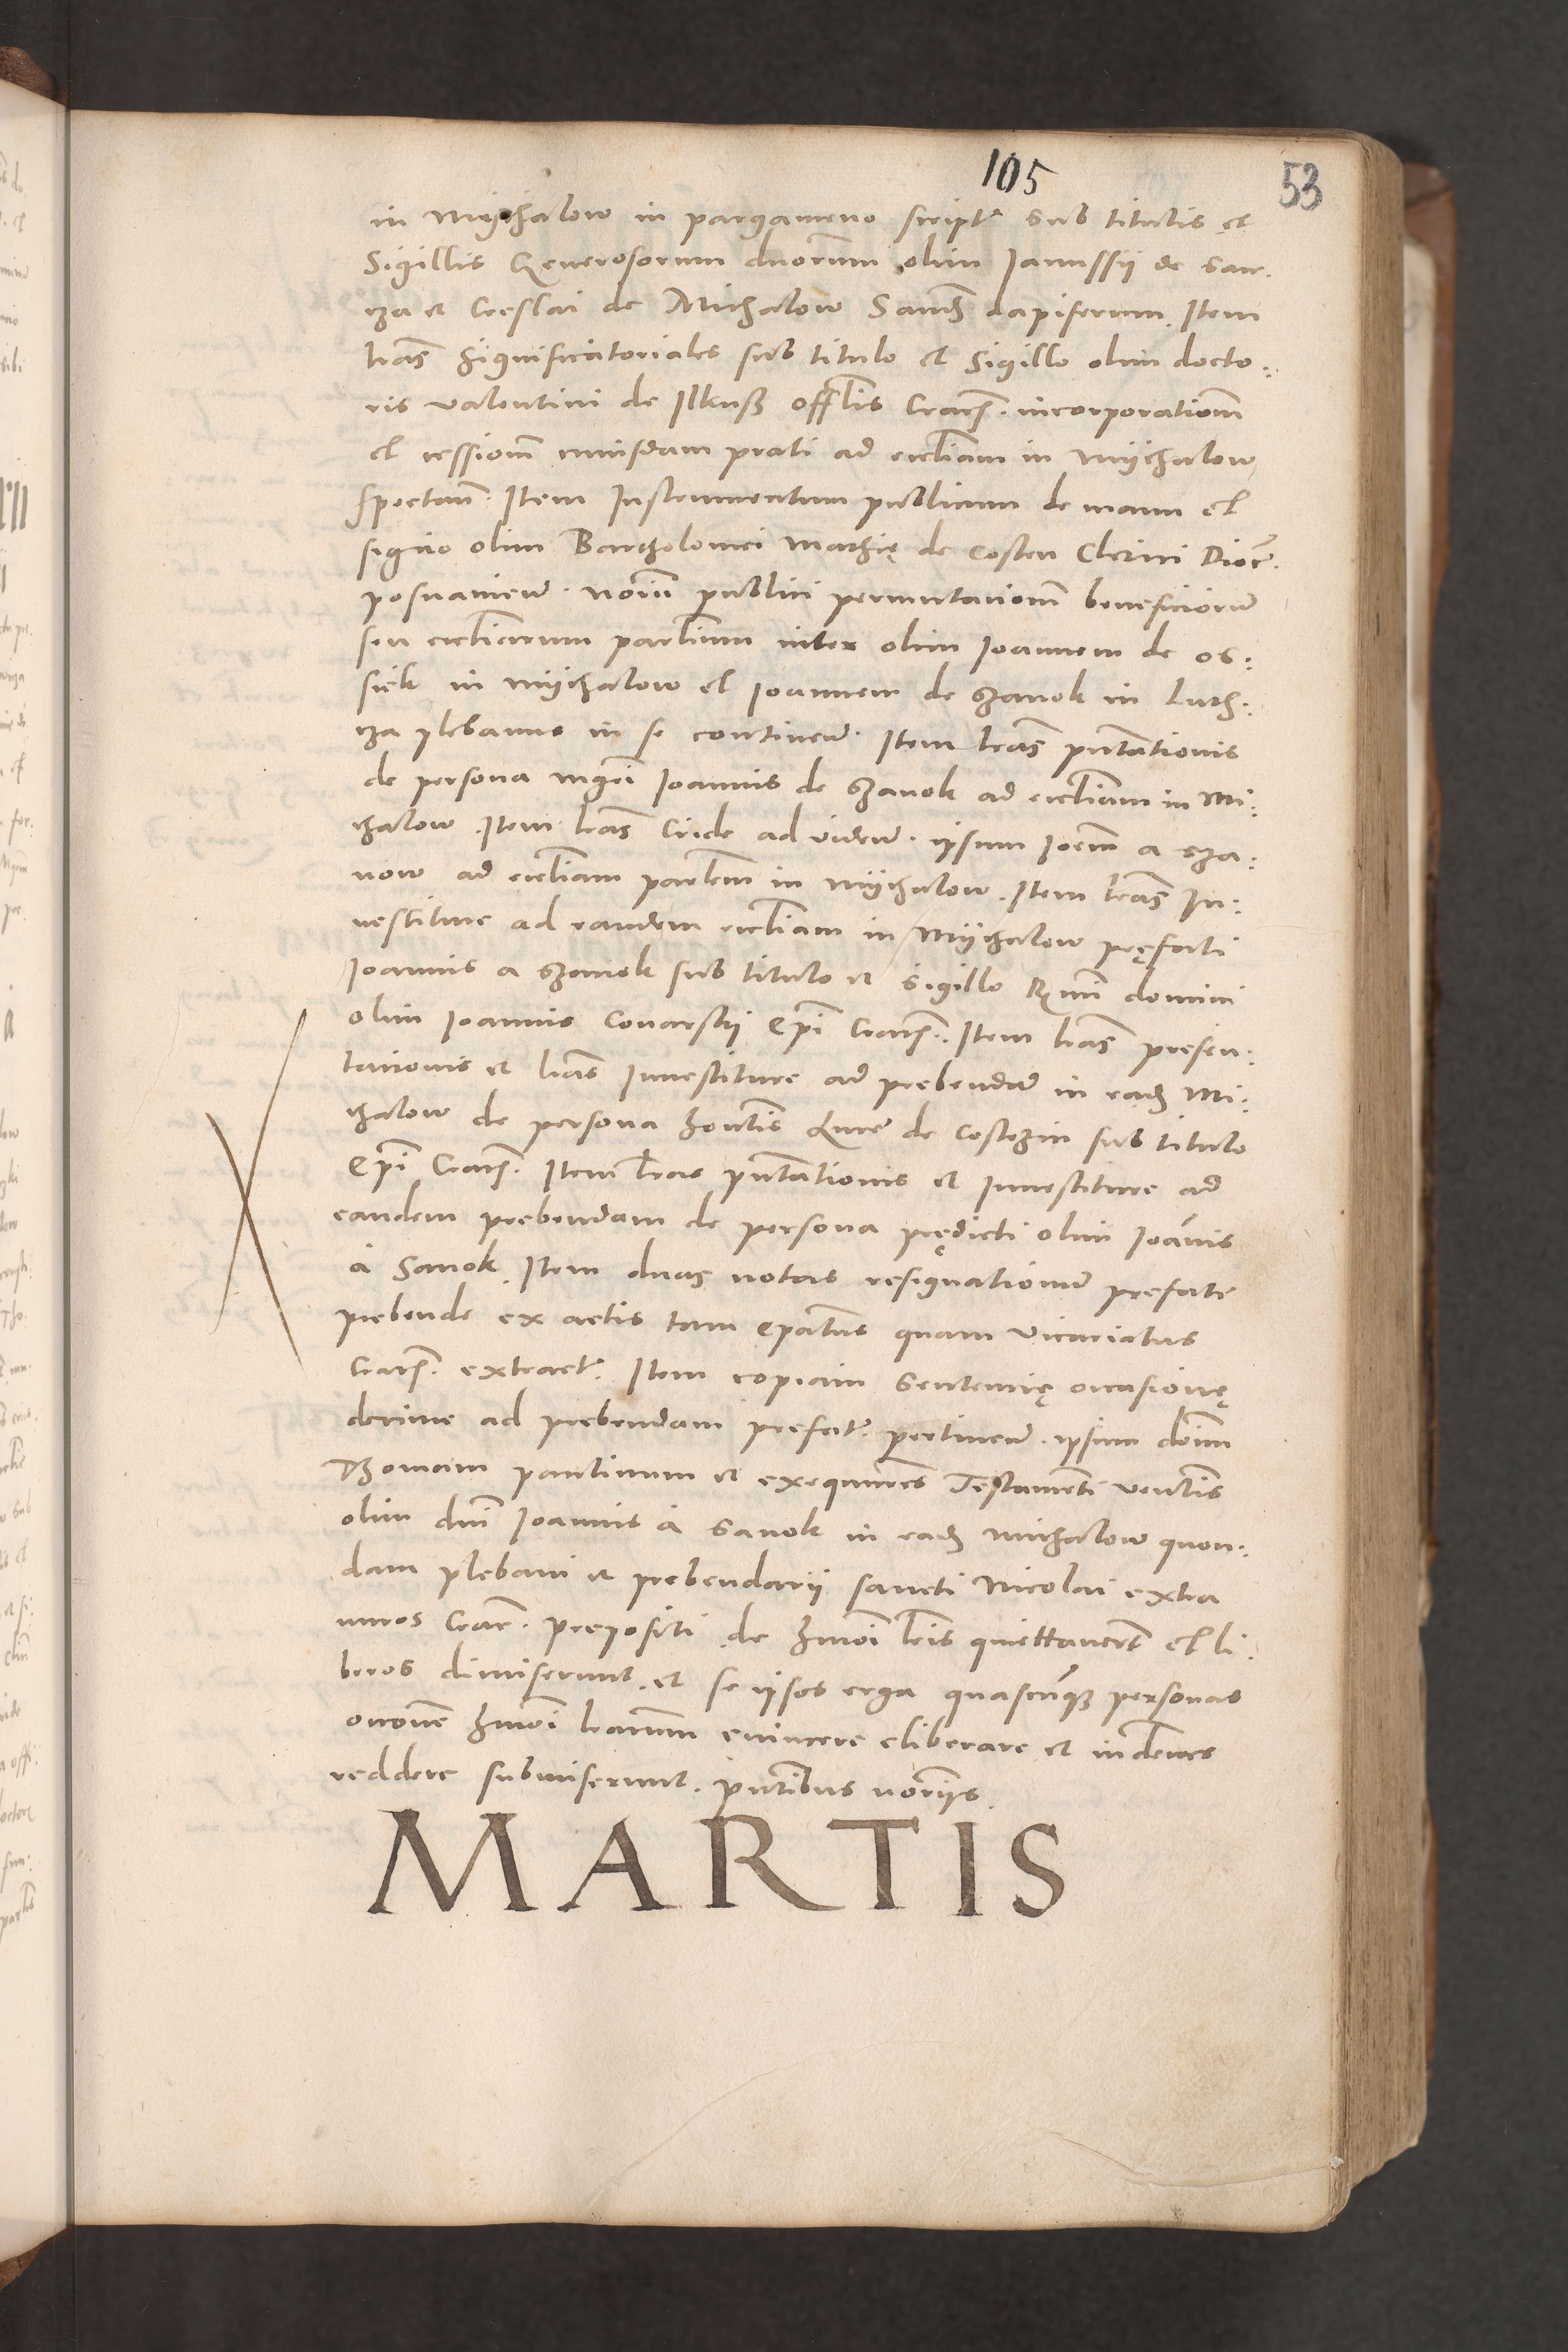 105
53
in Mychalow in pargameno script. sub titulis et
Sigillis Generosorum dnorum olim Janussij de Gar:
cza et Ceslai de Michalow Sand. dapiferum. Item
lras significatoriales sub titulo et Sigillo olim docto:
ris Valentini de Ilkusz offlis Crac. incorporationem
et cessionem cuiusdam prati ad eccliam in Mijchalow
spectan. Item Instrumentum publicum de manu et
signo olim Bartholomei Mathię de Costen Clerici Dioc.
posnanien. notarii publici permutationem beneficiorum
seu eccliarum parlium inter olim Joannem de Os:
siek in Mijchalow et Joannem de Szanok in Luth:
cza plebanus in se continen. Item lras pntationis
de persona mgri Joannis de Szanok ad eccliam in Mi:
chalow. Item lras Cride ad viden. ipsum Joem a Sza:
now ad eccliam parlem in Mijchalow. Item lras In:
vestiture ad eandem eccliam in Mijchalow pręfati
Joannis a Szanok sub titulo et sigillo Rmi domini
olim Joannis Conarskij Epi Crac. Item lras presen:
tationis et lras Investiture ad prebendam in ead. Mi:
chalow de persona hontis Luce de Costhzin sub titulo
Epi Crac. Item lras pntationis et Investiture ad
eandem prebendam de persona prędicti olim Joannis
à Sanok. Item duas notas resignationum prefate
prebende ex actis tam Epatus quam Vicariatus
Crac. extract. Item copiam Sententię occasionę
decime ad prebendam prefat. pertinen. ipsum dnum
Thomam pantlinum et exequutores Testamenti ventis
olim dni Joannis à Sanok in ead. Michalow quon:
dam plebani et prebendarij sancti Nicolai extra
muros Crac. prepositi de hmoi lris quiettaverunt et li:
beros dimiserunt. et se ipsos erga quascunque personas
occone hmoi lrarum evincere eliberare et indemnes
reddere submiserunt. pntibus notarijs.
MARTIS